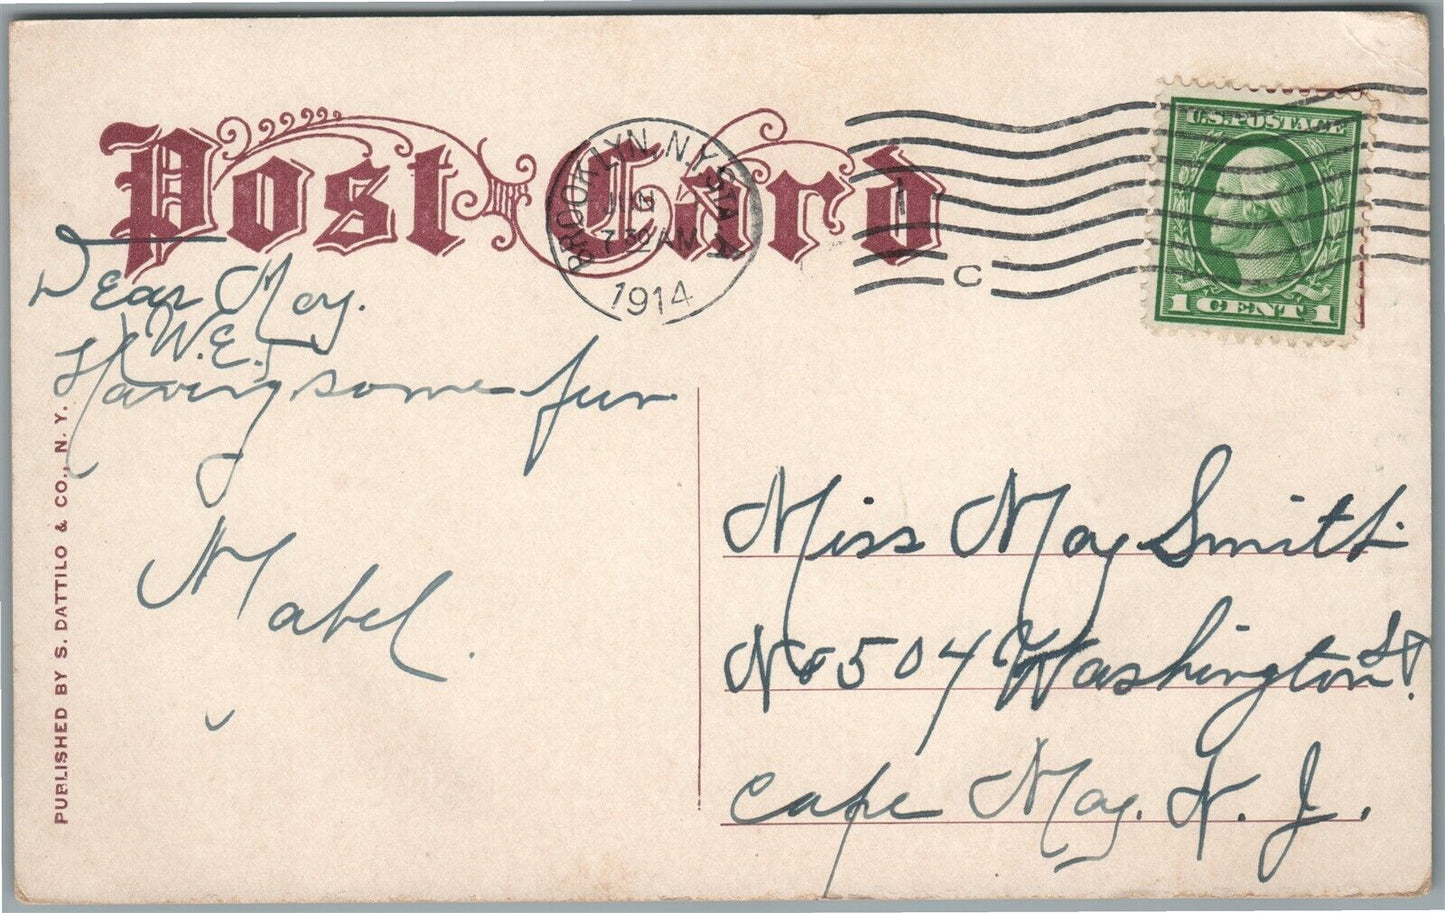 Post Card
BROOKLYN, N.Y. STA. A
7 30 AM
1914
C
U.S. POSTAGE
1 CENT 1
Dear May.
W.E.
Having some fun
Mabel.
Miss May Smith.
No 504 Washington St.
Cape May. N. J.
PUBLISHED BY S. DATTILO & CO., N. Y.